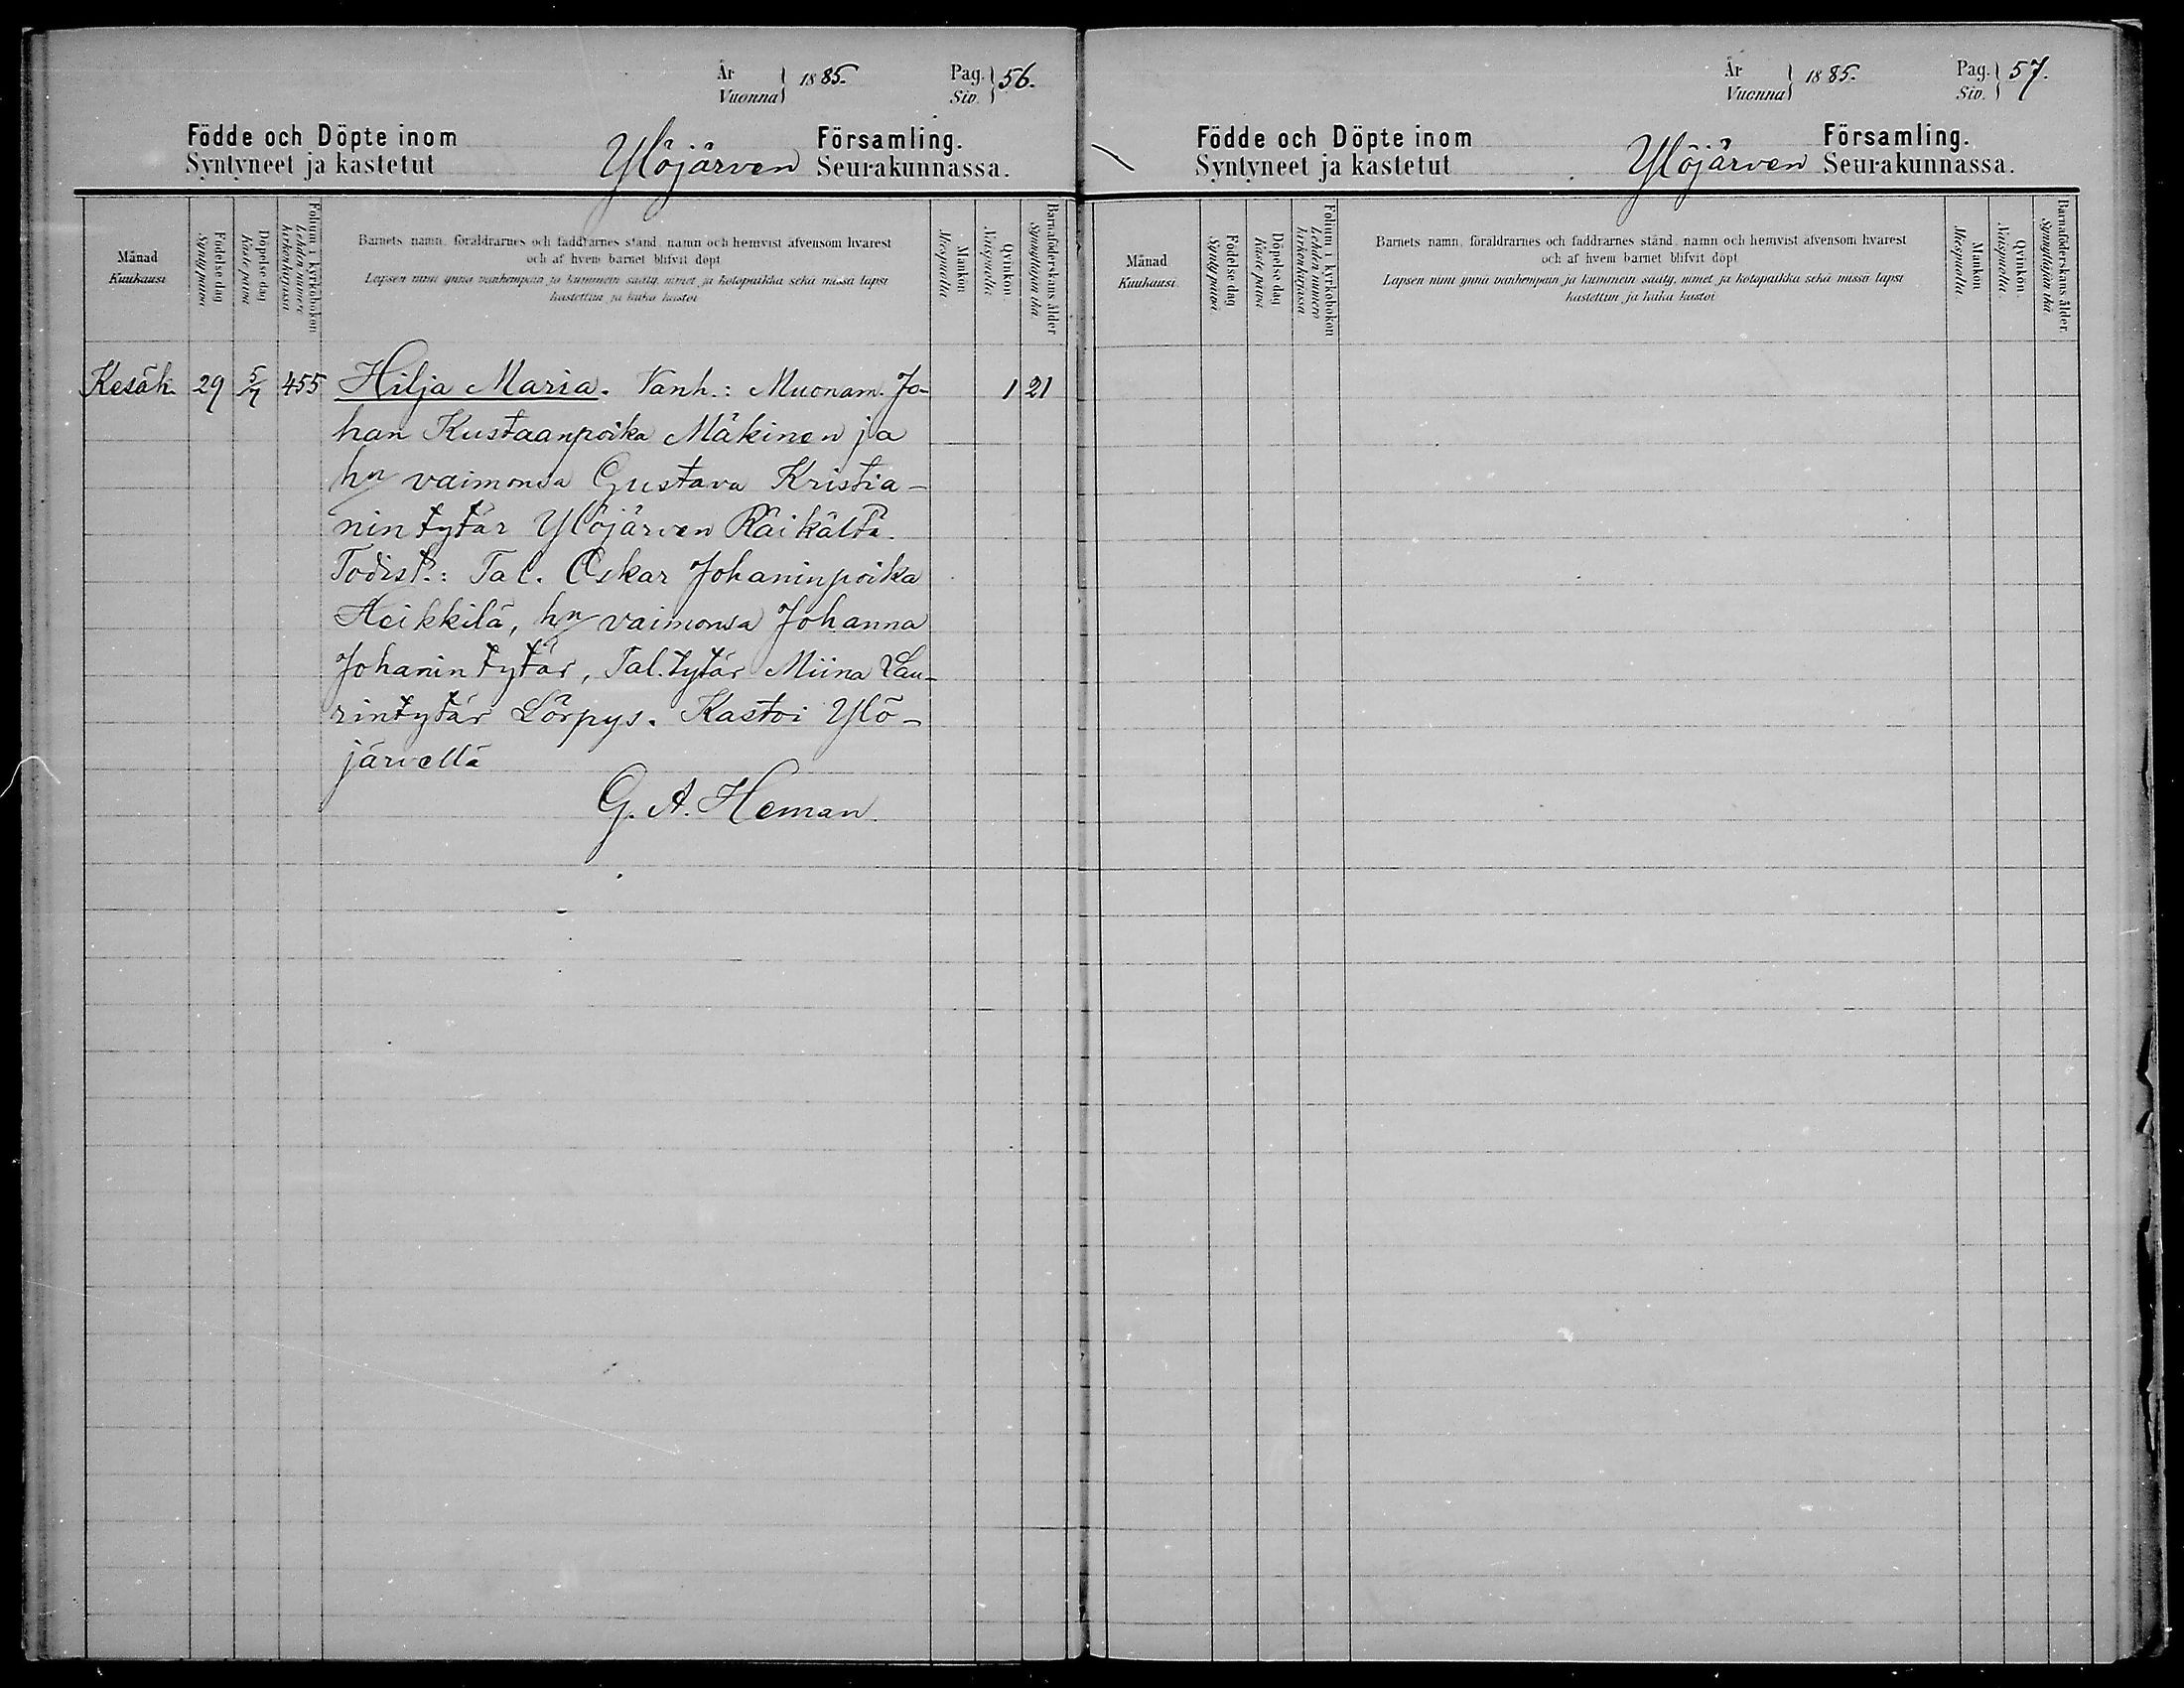 År
Vuonna } 1885.
Pag.
Siv. } 56.
Födde och Döpte inom Församling.
Syntyneet ja kastetut Ylöjärven Seurakunnassa.
Månad
Kuukausi
Födelse dag
Synty päivä
Döpelse dag
Kaste päivä
Folium i kyrkoboken
Lehden numero
kirkonkirjassa
Barnets namn, föräldrarnes och faddrarnes stånd, namn och hemvist äfvensom hvarest
och af hvem barnet blifvit döpt
Lapsen nimi ynnä vanhempain ja kummein sääty, nimet ja kotopaikka sekä missä lapsi
kastettiin ja kuka kastoi
Mankön
Miespuolia
Qvinkön
Naispuolia
Barnaföderskans ålder
Synnyttäjän ikä
Kesäk. 29 5/7 455 Hilja Maria. Vanh.: Muonam. Jo- 1 21
han Kustaanpoika Mäkinen ja
hn vaimonsa Gustava Kristia-
nintytär Ylöjärven Räikältä.
Todist.: Tal. Oskar Johaninpoika
Heikkilä, hn vaimonsa Johanna
Johanintytär, Tal.tytär Miina Lau-
rintytär Lörpys. Kastoi Ylö-
järvellä
G. A. Heman.
År
Vuonna } 1885.
Pag.
Siv. } 57.
Födde och Döpte inom Församling.
Syntyneet ja kastetut Ylöjärven Seurakunnassa.
Månad
Kuukausi
Födelse dag
Synty päivä
Döpelse dag
Kaste päivä
Folium i kyrkoboken
Lehden numero
kirkonkirjassa
Barnets namn, föräldrarnes och faddrarnes stånd, namn och hemvist äfvensom hvarest
och af hvem barnet blifvit döpt
Lapsen nimi ynnä vanhempain ja kummein sääty, nimet ja kotopaikka sekä missä lapsi
kastettiin, ja kuka kastoi
Mankön
Miespuolia
Qvinkön
Naispuolia
Barnaföderskans ålder
Synnyttäjän ikä